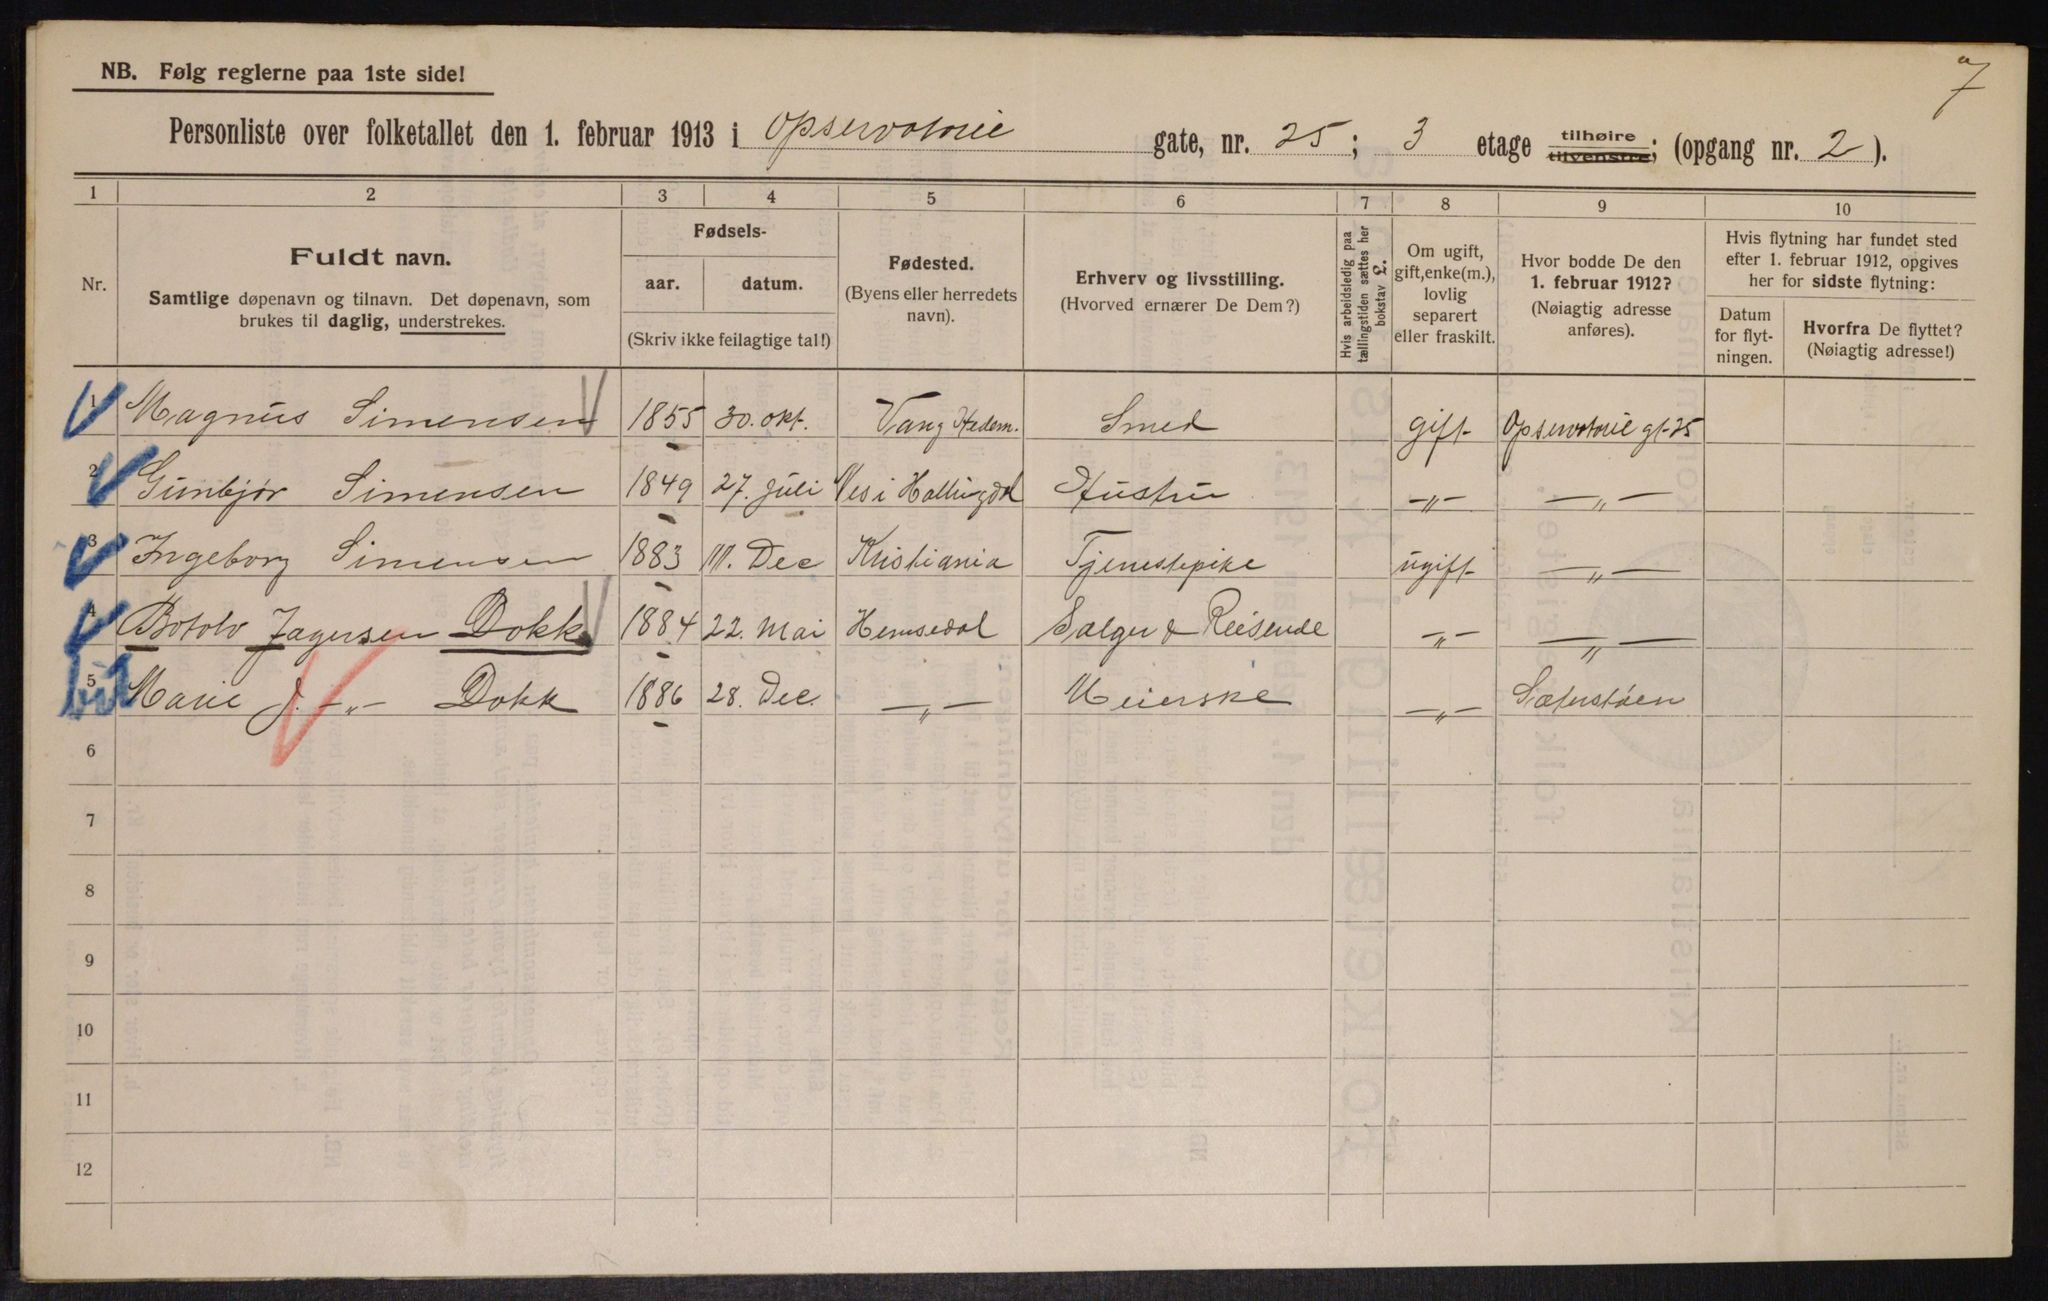 7
NB. Følg reglerne paa 1ste side!
Personliste over folketallet den 1. februar 1913 i Opservotorie gate, nr. 25 ; 3 etage tilhøire tilvenstre; (opgang nr. 2 ).
1 2 3 4 5 6 7 8 9 10
Nr.
Fuldt navn.
Samtlige døpenavn og tilnavn. Det døpenavn, som
brukes til daglig, understrekes.
Fødsels-
aar. datum.
(Skriv ikke feilagtige tal!)
Fødested.
(Byens eller herredets
navn).
Erhverv og livsstilling.
(Hvorved ernærer De Dem?)
Hvis arbeidsledig paa
tællingstiden sættes her
bokstav L.
Om ugift,
gift, enke(m.),
lovlig
separert
eller fraskilt.
Hvor bodde De den
1. februar 1912?
(Nøiagtig adresse
anføres).
Hvis flytning har fundet sted
efter 1. februar 1912, opgives
her for sidste flytning:
Datum
for flyt-
ningen.
Hvorfra De flyttet?
(Nøiagtig adresse!)
1 Magnus Simensen 1855 30. okt. Vang Hedem. Smed gift Opservotorie gt. 25
2 Gunbjør Simensen 1849 27. juli Nes i Hallingdal Hustru —„— —„—
3 Ingeborg Simensen 1883 Dec Kristiania Tjenestepike ugift —„—
4 Botolv Jagersen Dokk 1884 22. Mai Hemsedal Sælger & Reisende —„— —„—
5 Marie J. —„— Dokk 1886 28. Dec. —„— Meierske —„— Sæterstøen
6
7
8
9
10
11
12